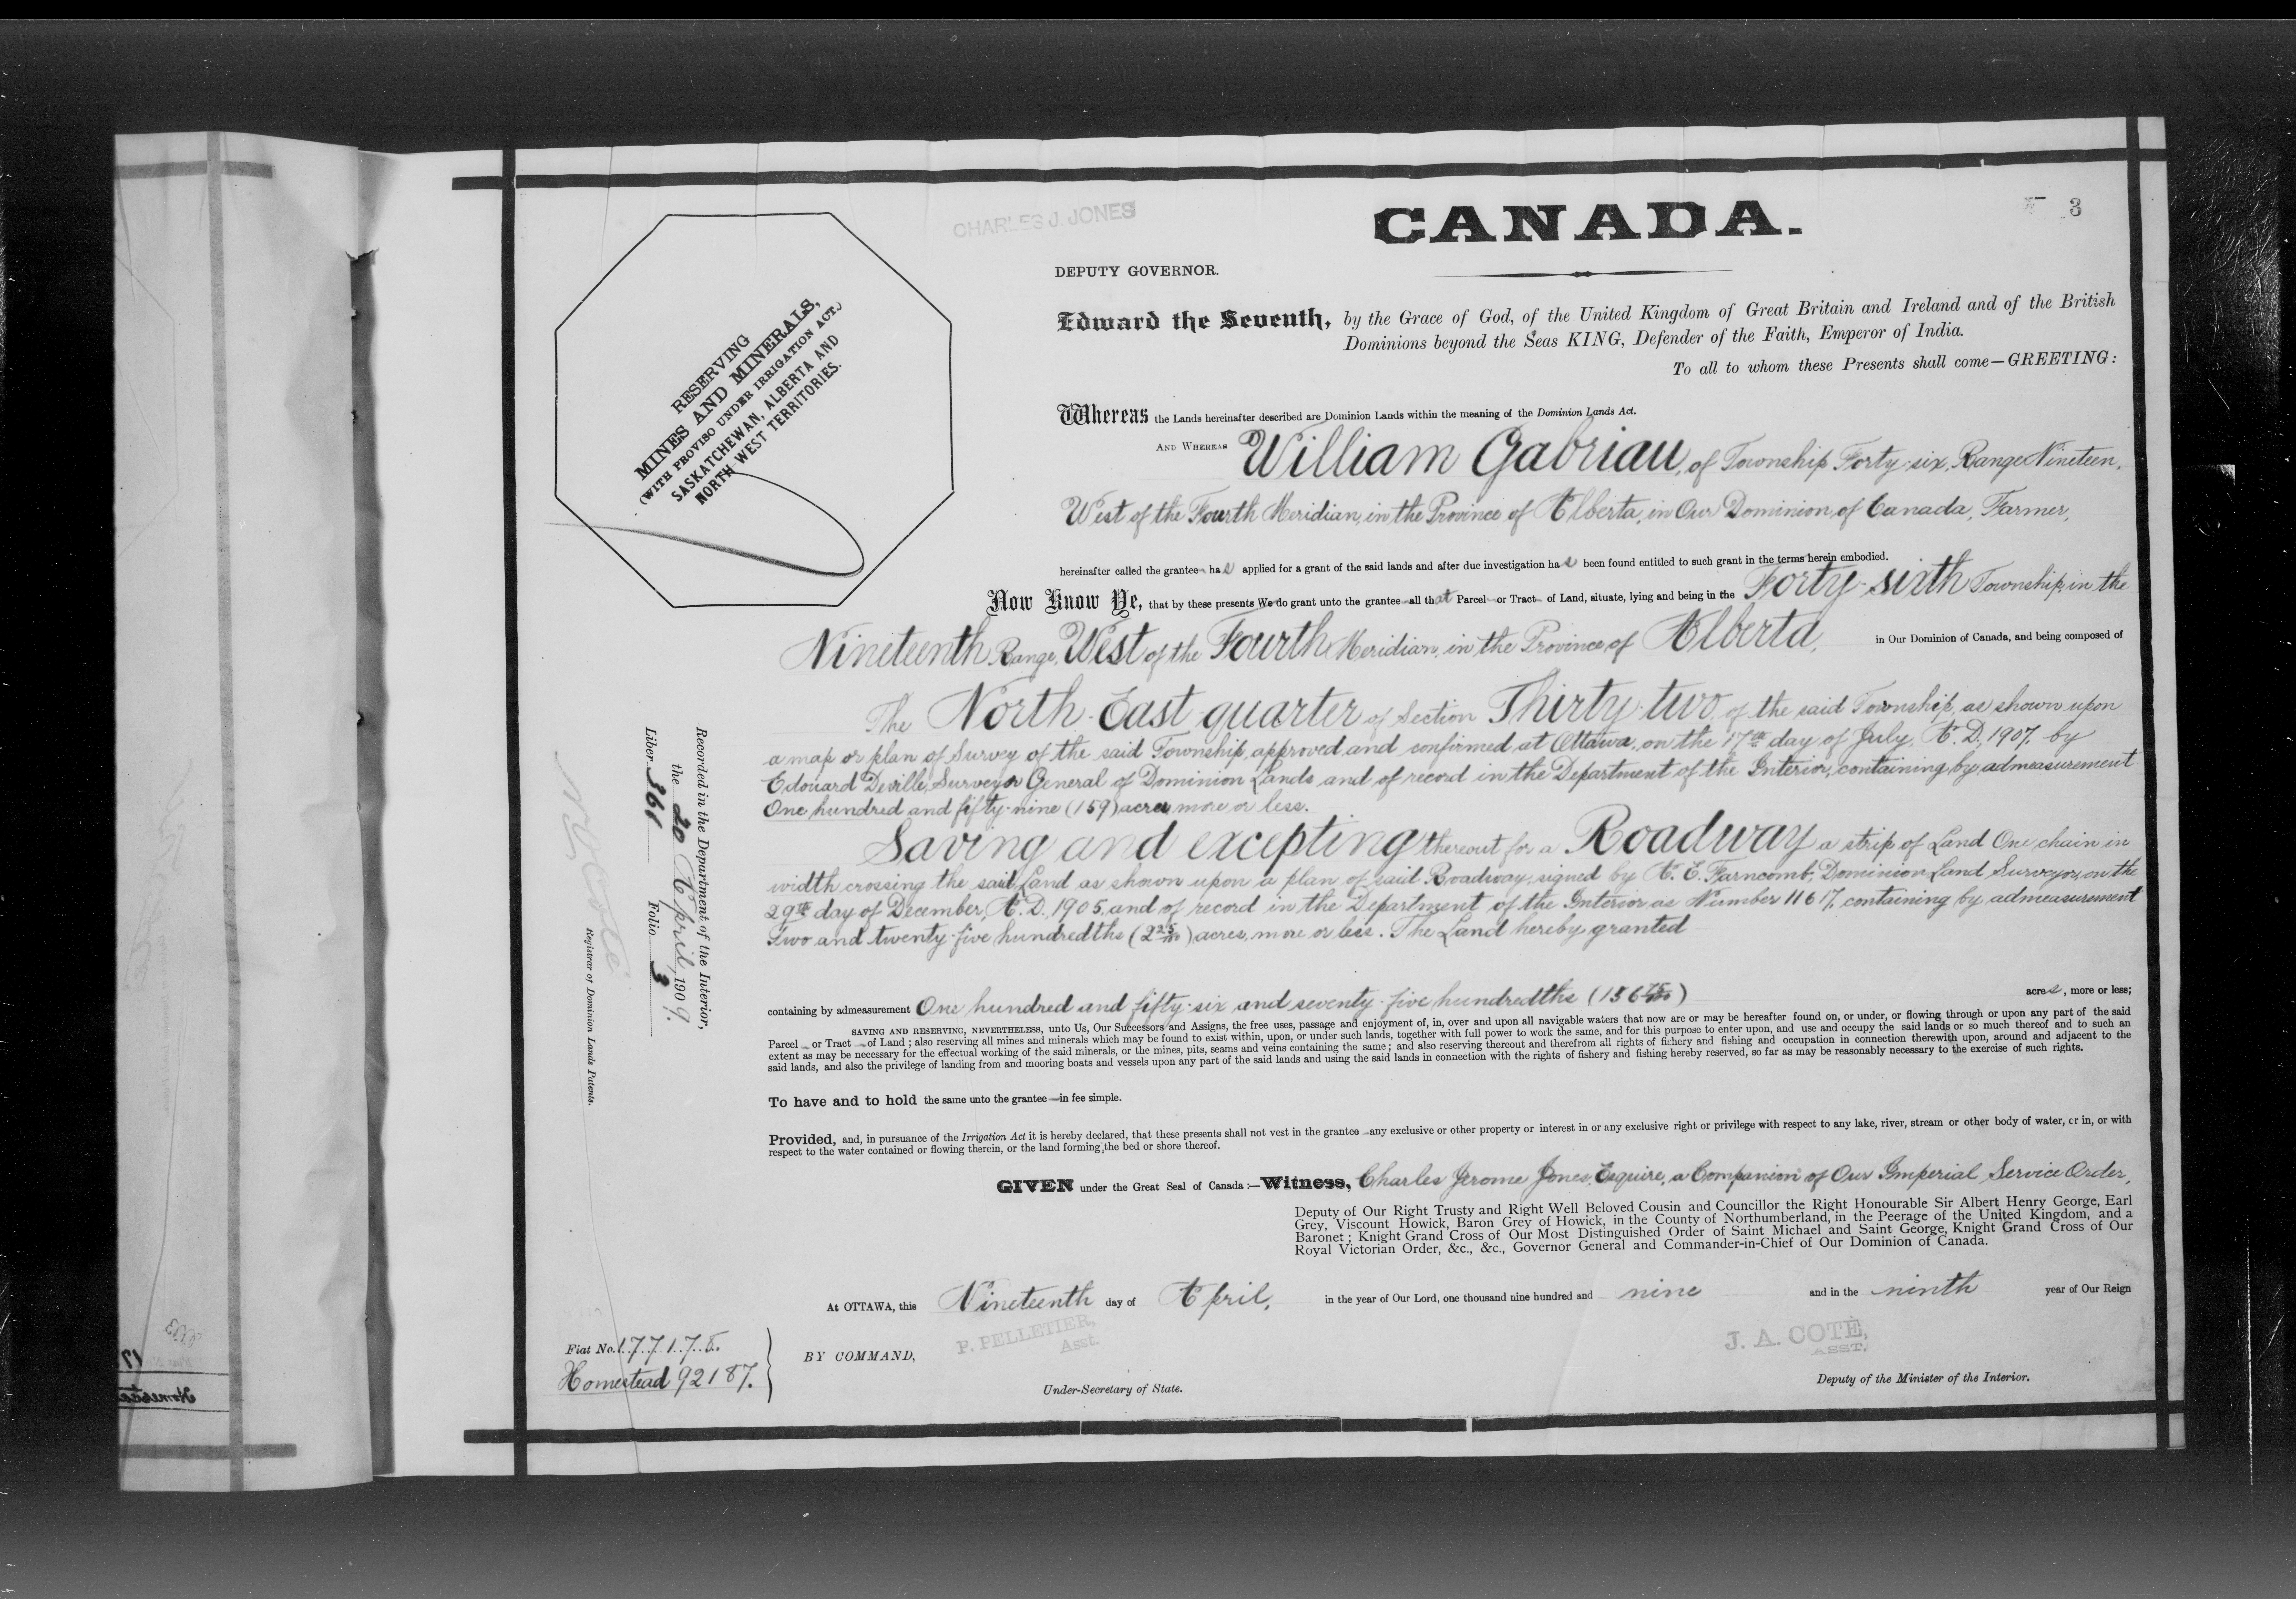 CHARLES J. JONES
CANADA.
3
DEPUTY GOVERNOR.
RESERVING
MINES AND MINERALS,
(WITH PROVISO UNDER IRRIGATION ACT.)
SASKATCHEWAN, ALBERTA AND
NORTH WEST TERRITORIES.
Edward the Seventh, by the Grace of God, of the United Kingdom of Great Britain and Ireland and of the British
Dominions beyond the Seas KING, Defender of the Faith, Emperor of India.
To all to whom these Presents shall come—GREETING:
Whereas the Lands hereinafter described are Dominion Lands within the meaning of the Dominion Lands Act.
AND WHEREAS William Gabriau, of Township Forty-six, Range Nineteen,
West of the Fourth Meridian, in the Province of Alberta, in Our Dominion of Canada, Farmer,
hereinafter called the grantee has applied for a grant of the said lands and after due investigation has been found entitled to such grant in the terms herein embodied.
Now Know Ye, that by these presents We do grant unto the grantee all that Parcel or Tract of Land, situate, lying and being in the Forty-sixth Township, in the
Nineteenth Range, West of the Fourth Meridian, in the Province of Alberta, in Our Dominion of Canada, and being composed of
The North-East quarter of Section Thirty-two, of the said Township, as shown upon
a map or plan of Survey of the said Township, approved and confirmed at Ottawa, on the 17th day of July, A.D., 1907, by
Edouard Deville, Surveyor General of Dominion Lands and of record in the Department of the Interior, containing by admeasurement
One hundred and fifty-nine (159) acres more or less.
Saving and excepting thereout for a Roadway a strip of Land One chain in
width crossing the said Land as shown upon a plan of said Roadway, signed by A. E. Farncomb, Dominion Land Surveyor, on the
29th day of December, A.D., 1905, and of record in the Department of the Interior as Number 11617, containing by admeasurement
Two and twenty-five hundredths (2 25/100) acres, more or less. The Land hereby granted
containing by admeasurement One hundred and fifty-six and seventy-five hundredths (156 75/100) acres, more or less;
SAVING AND RESERVING, NEVERTHELESS, unto Us, Our Successors and Assigns, the free uses, passage and enjoyment of, in, over and upon all navigable waters that now are or may be hereafter found on, or under, or flowing through or upon any part of the said
Parcel or Tract of Land; also reserving all mines and minerals which may be found to exist within, upon, or under such lands, together with full power to work the same, and for this purpose to enter upon, and use and occupy the said lands or so much thereof and to such an
extent as may be necessary for the effectual working of the said minerals, or the mines, pits, seams and veins containing the same; and also reserving thereout and therefrom all rights of fishery and fishing and occupation in connection therewith upon, around and adjacent to the
said lands, and also the privilege of landing from and mooring boats and vessels upon any part of the said lands and using the said lands in connection with the rights of fishery and fishing hereby reserved, so far as may be reasonably necessary to the exercise of such rights.
To have and to hold the same unto the grantee in fee simple.
Provided, and, in pursuance of the Irrigation Act it is hereby declared, that these presents shall not vest in the grantee any exclusive or other property or interest in or any exclusive right or privilege with respect to any lake, river, stream or other body of water, or in, or with
respect to the water contained or flowing therein, or the land forming the bed or shore thereof.
GIVEN under the Great Seal of Canada:—Witness, Charles Jerome Jones, Esquire, a Companion of Our Imperial Service Order,
Deputy of Our Right Trusty and Right Well Beloved Cousin and Councillor the Right Honourable Sir Albert Henry George, Earl
Grey, Viscount Howick, Baron Grey of Howick, in the County of Northumberland, in the Peerage of the United Kingdom, and a
Baronet; Knight Grand Cross of Our Most Distinguished Order of Saint Michael and Saint George, Knight Grand Cross of Our
Royal Victorian Order, &c., &c., Governor General and Commander-in-Chief of Our Dominion of Canada.
At OTTAWA, this Nineteenth day of April, in the year of Our Lord, one thousand nine hundred and nine and in the ninth year of Our Reign
BY COMMAND,
P. PELLETIER,
Asst.
Under-Secretary of State.
J. A. COTÉ,
ASST.
Deputy of the Minister of the Interior.
Fiat No. 177175.
Homestead 92187.
Recorded in the Department of the Interior,
the 20 April, 1909.
Liber 361 Folio 3
N. O. Coté
Registrar of Dominion Lands Patents.